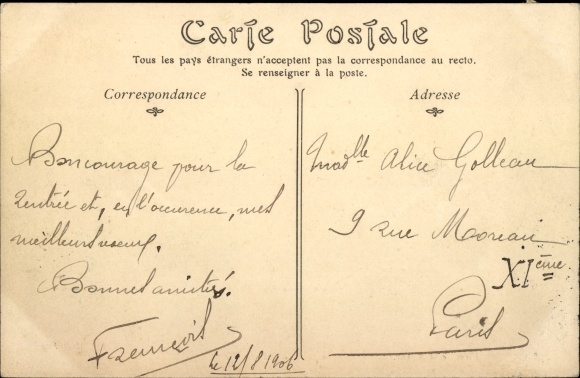 Carte Postale
Tous les pays étrangers n'acceptent pas la correspondance au recto.
Se renseigner à la poste.
Correspondance
Bon courage pour la
rentrée et, en l'occurence, mes
meilleurs voeux.
Bonnes amitiés.
le 12/8 1906
Adresse
Madlle Alice
9 rue Moreau
XIème
Paris